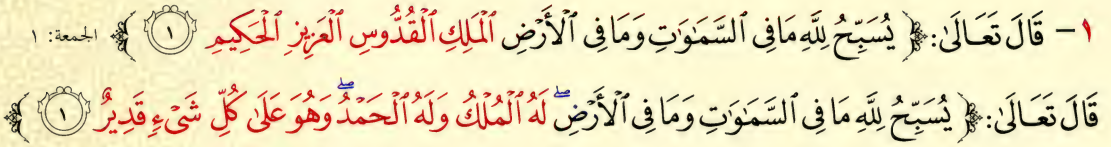 ١ – قَالَ تَعَالَىٰ: ﴿ يُسَبِّحُ لِلَّهِ مَا فِى السَّمَٰوَٰتِ وَمَا فِى ٱلْأَرْضِ ٱلْمَلِكِ ٱلْقُدُّوسِ ٱلْعَزِيزِ ٱلْحَكِيمِ ١ ﴾ الجمعة: ١
قَالَ تَعَالَىٰ: ﴿ يُسَبِّحُ لِلَّهِ مَا فِى السَّمَٰوَٰتِ وَمَا فِى ٱلْأَرْضِۖ لَهُ ٱلْمُلْكُ وَلَهُ ٱلْحَمْدُۖ وَهُوَ عَلَىٰ كُلِّ شَىْءٍ قَدِيرٌ ١ ﴾